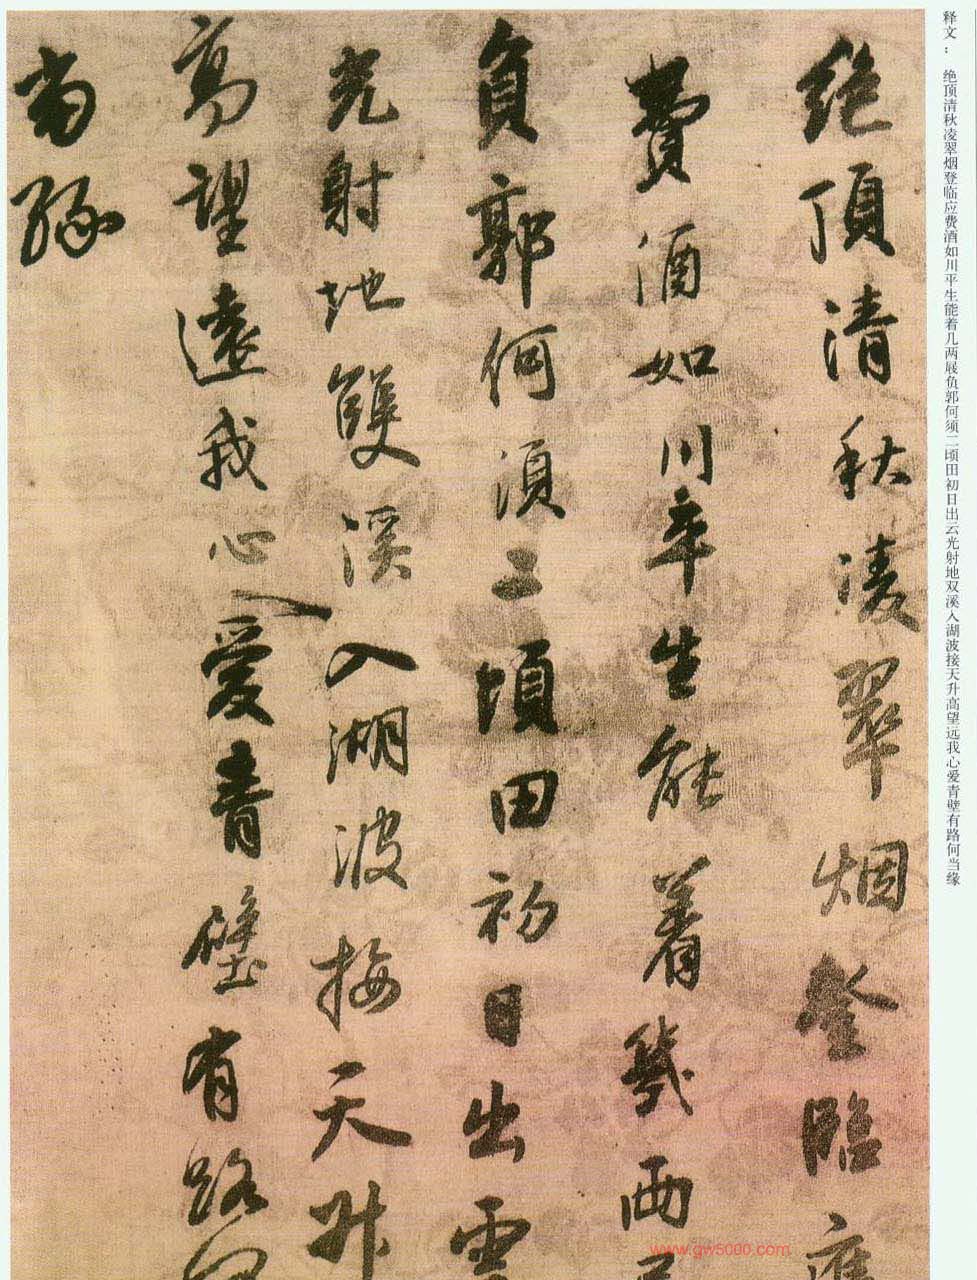 释文： 绝顶清秋凌翠烟登临应费酒如川平生能着几两屐负郭何须二顷田初日出云光射地双溪入湖波接天升高望远我心爱青壁有路何当缘
絶頂清秋淩翠烟登臨應
費酒如川平生能着幾兩
負郭何須二頃田初日出雲
光射地雙溪入湖波接天升
高望遠我心愛青壁有路何
當緣
www.gw5000.com